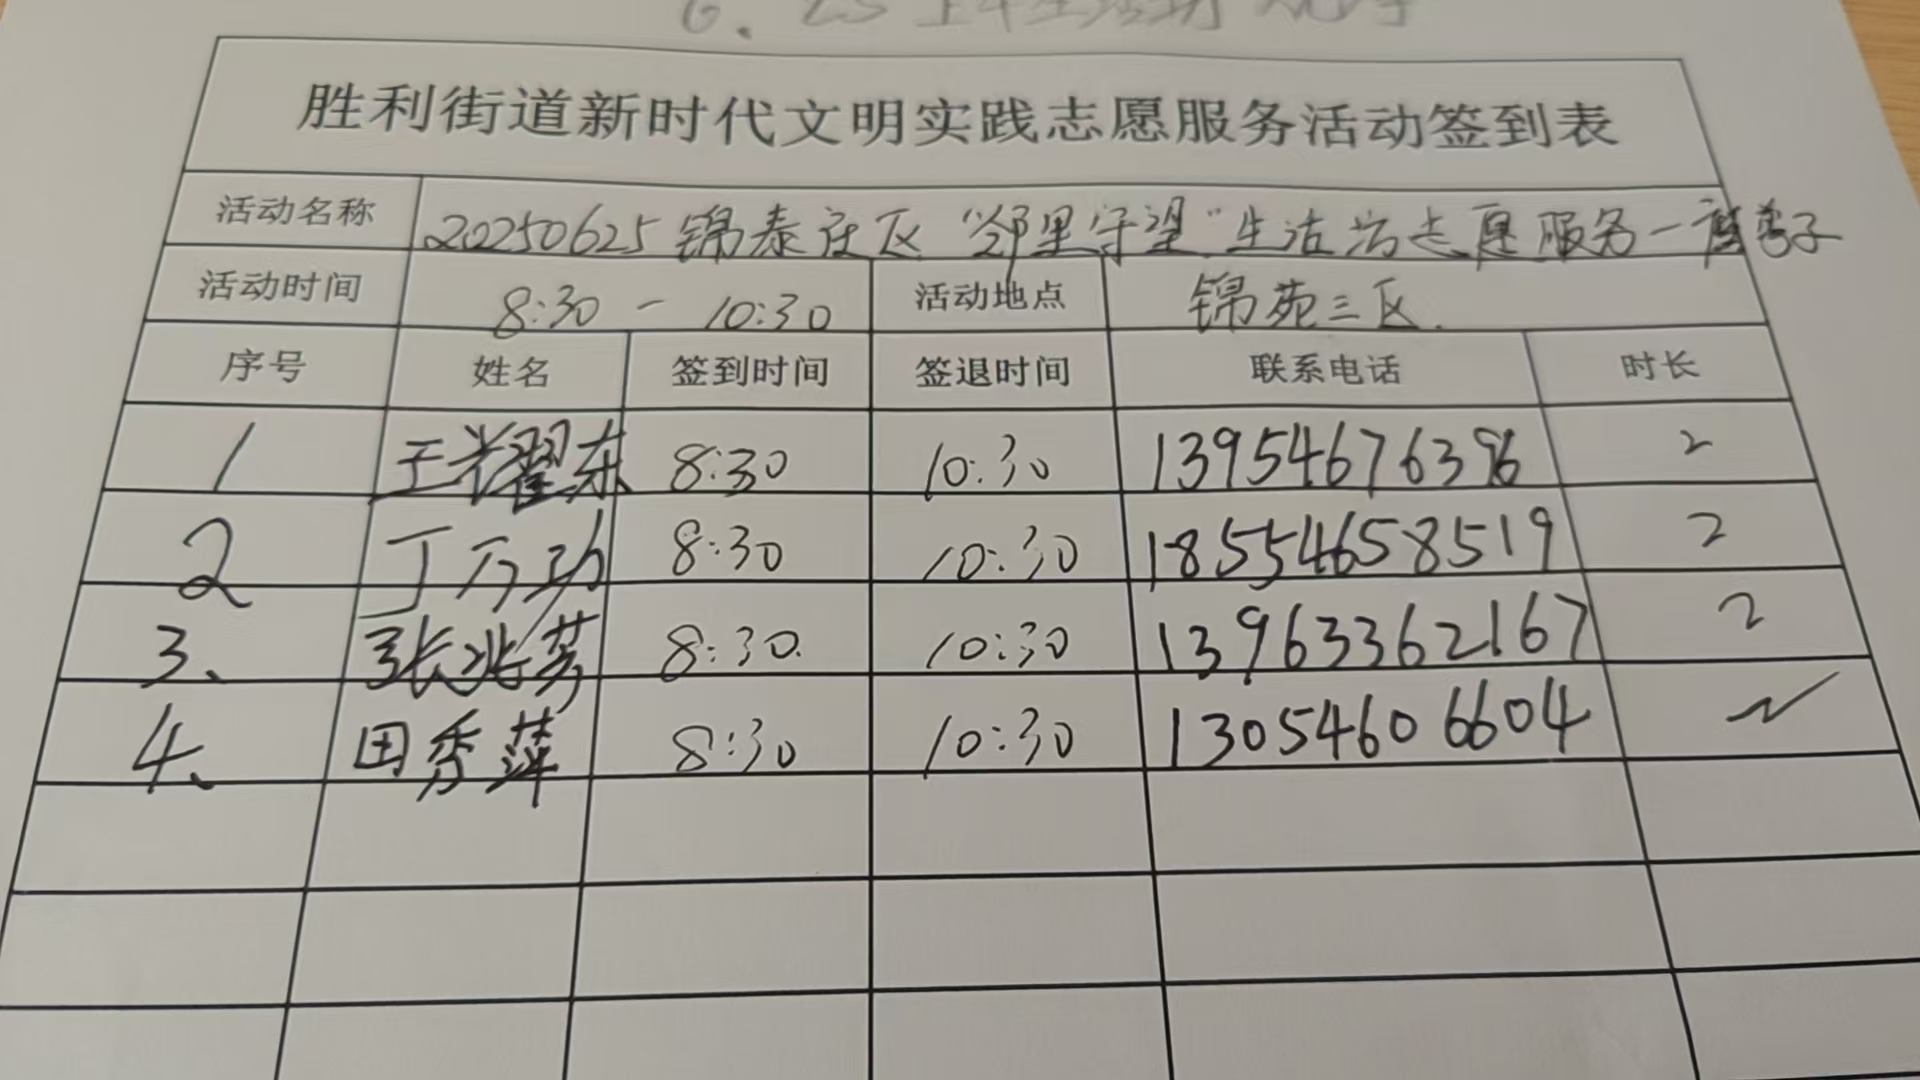 胜利街道新时代文明实践志愿服务活动签到表
活动名称 20250625锦泰社区“邻里守望”生活坊志愿服务一磨剪子
活动时间 8:30 - 10:30 活动地点 锦苑三区.
序号 姓名 签到时间 签退时间 联系电话 时长
1 王耀东 8:30 10:30 13954676396 2
2 丁万功 8:30 10:30 18554658519 2
3、 张兆芳 8:30. 10:30 13963362167 2
4、 田秀萍 8:30 10:30 13054606604 2